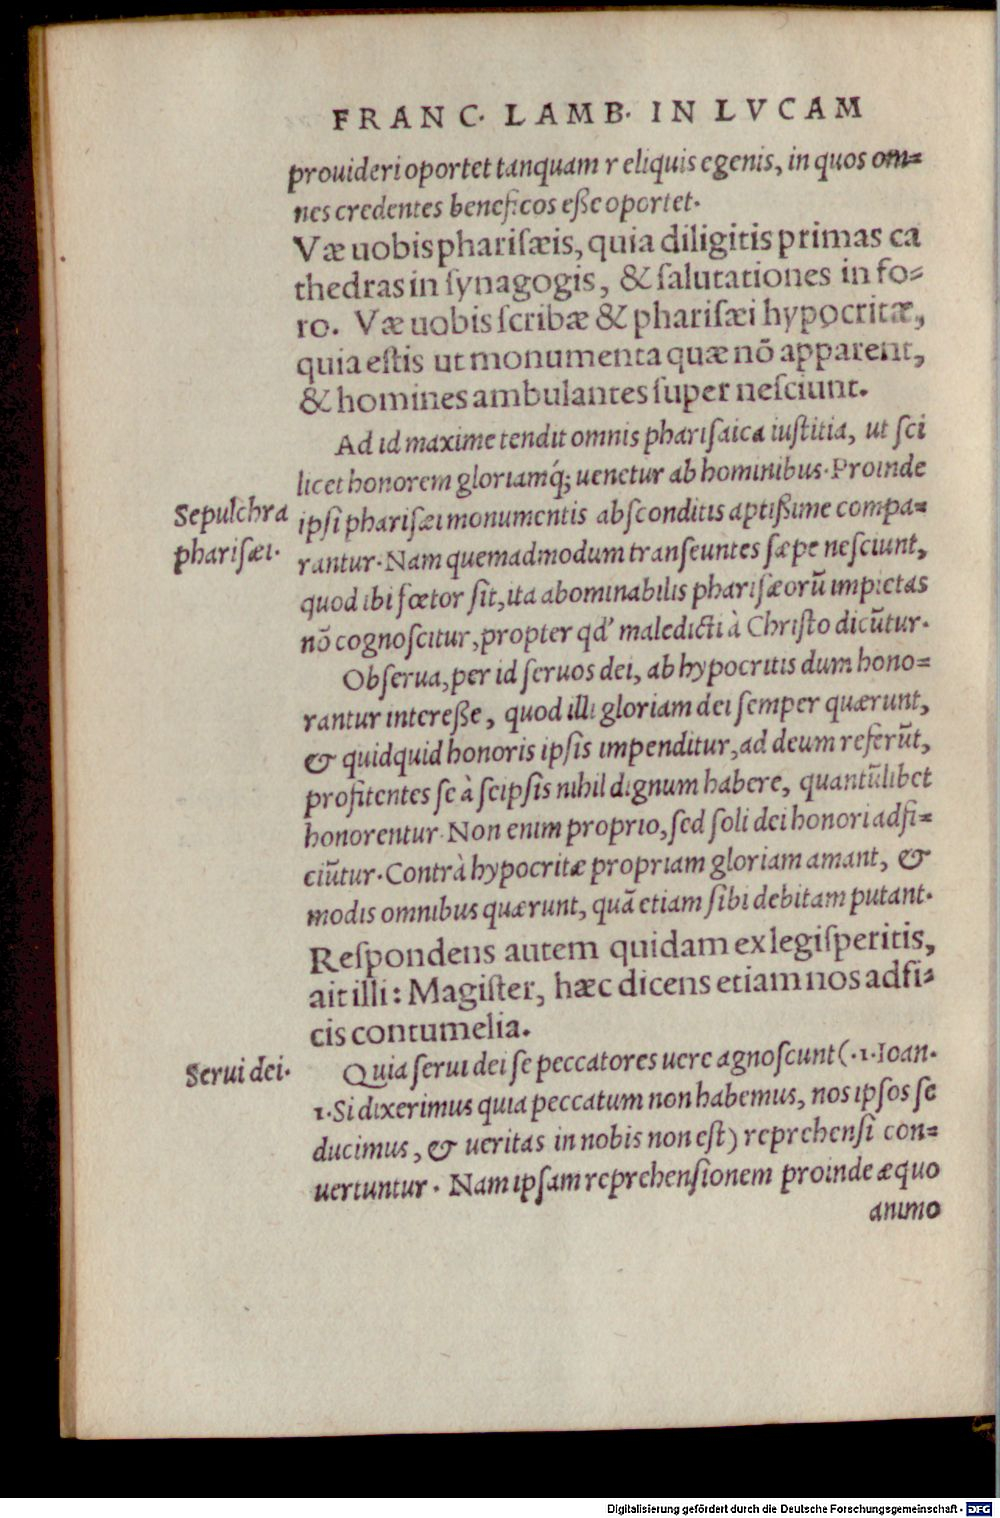 FRANC. LAMB. IN LVCAM
prouideri oportet tanquam reliquis egenis, in quos om=
nes credentes beneficos eße oportet.
Væ uobis phariſæis, quia diligitis primas ca
thedras in ſynagogis, & ſalutationes in fo=
ro. Væ uobis ſcribæ & phariſæi hypocritæ,
quia eſtis ut monumenta quæ nõ apparent,
& homines ambulantes ſuper neſciunt.
Ad id maxime tendit omnis phariſaica iuſtitia, ut ſci
licet honorem gloriamq́; uenetur ab hominibus. Proinde
Sepulchra
phariſæi.
ipſi phariſæi monumentis abſconditis aptißime compa=
rantur. Nam quemadmodum tranſeuntes ſæpe neſciunt,
quod ibi fœtor ſit, ita abominabilis phariſæorũ impietas
nõ cognoſcitur, propter qd' maledicti à Chriſto dicũtur.
Obſerua, per id ſeruos dei, ab hypocritis dum hono=
rantur intereße, quod illi gloriam dei ſemper quærunt,
& quidquid honoris ipſis impenditur, ad deum referũt,
profitentes ſe à ſeipſis nihil dignum habere, quantũlibet
honorentur. Non enim proprio, ſed ſoli dei honori adfi=
ciũtur. Contrà hypocritæ propriam gloriam amant, &
modis omnibus quærunt, quã etiam ſibi debitam putant.
Reſpondens autem quidam ex legiſperitis,
ait illi: Magiſter, hæc dicens etiam nos adfi=
cis contumelia.
Serui dei.
Quia ſerui dei ſe peccatores uere agnoſcunt (.1. Ioan.
1. Si dixerimus quia peccatum non habemus, nos ipſos ſe
ducimus, & ueritas in nobis non eſt) reprehenſi con=
uertuntur. Nam ipſam reprehenſionem proinde æquo
animo
Digitalisierung gefördert durch die Deutsche Forschungsgemeinschaft - DFG